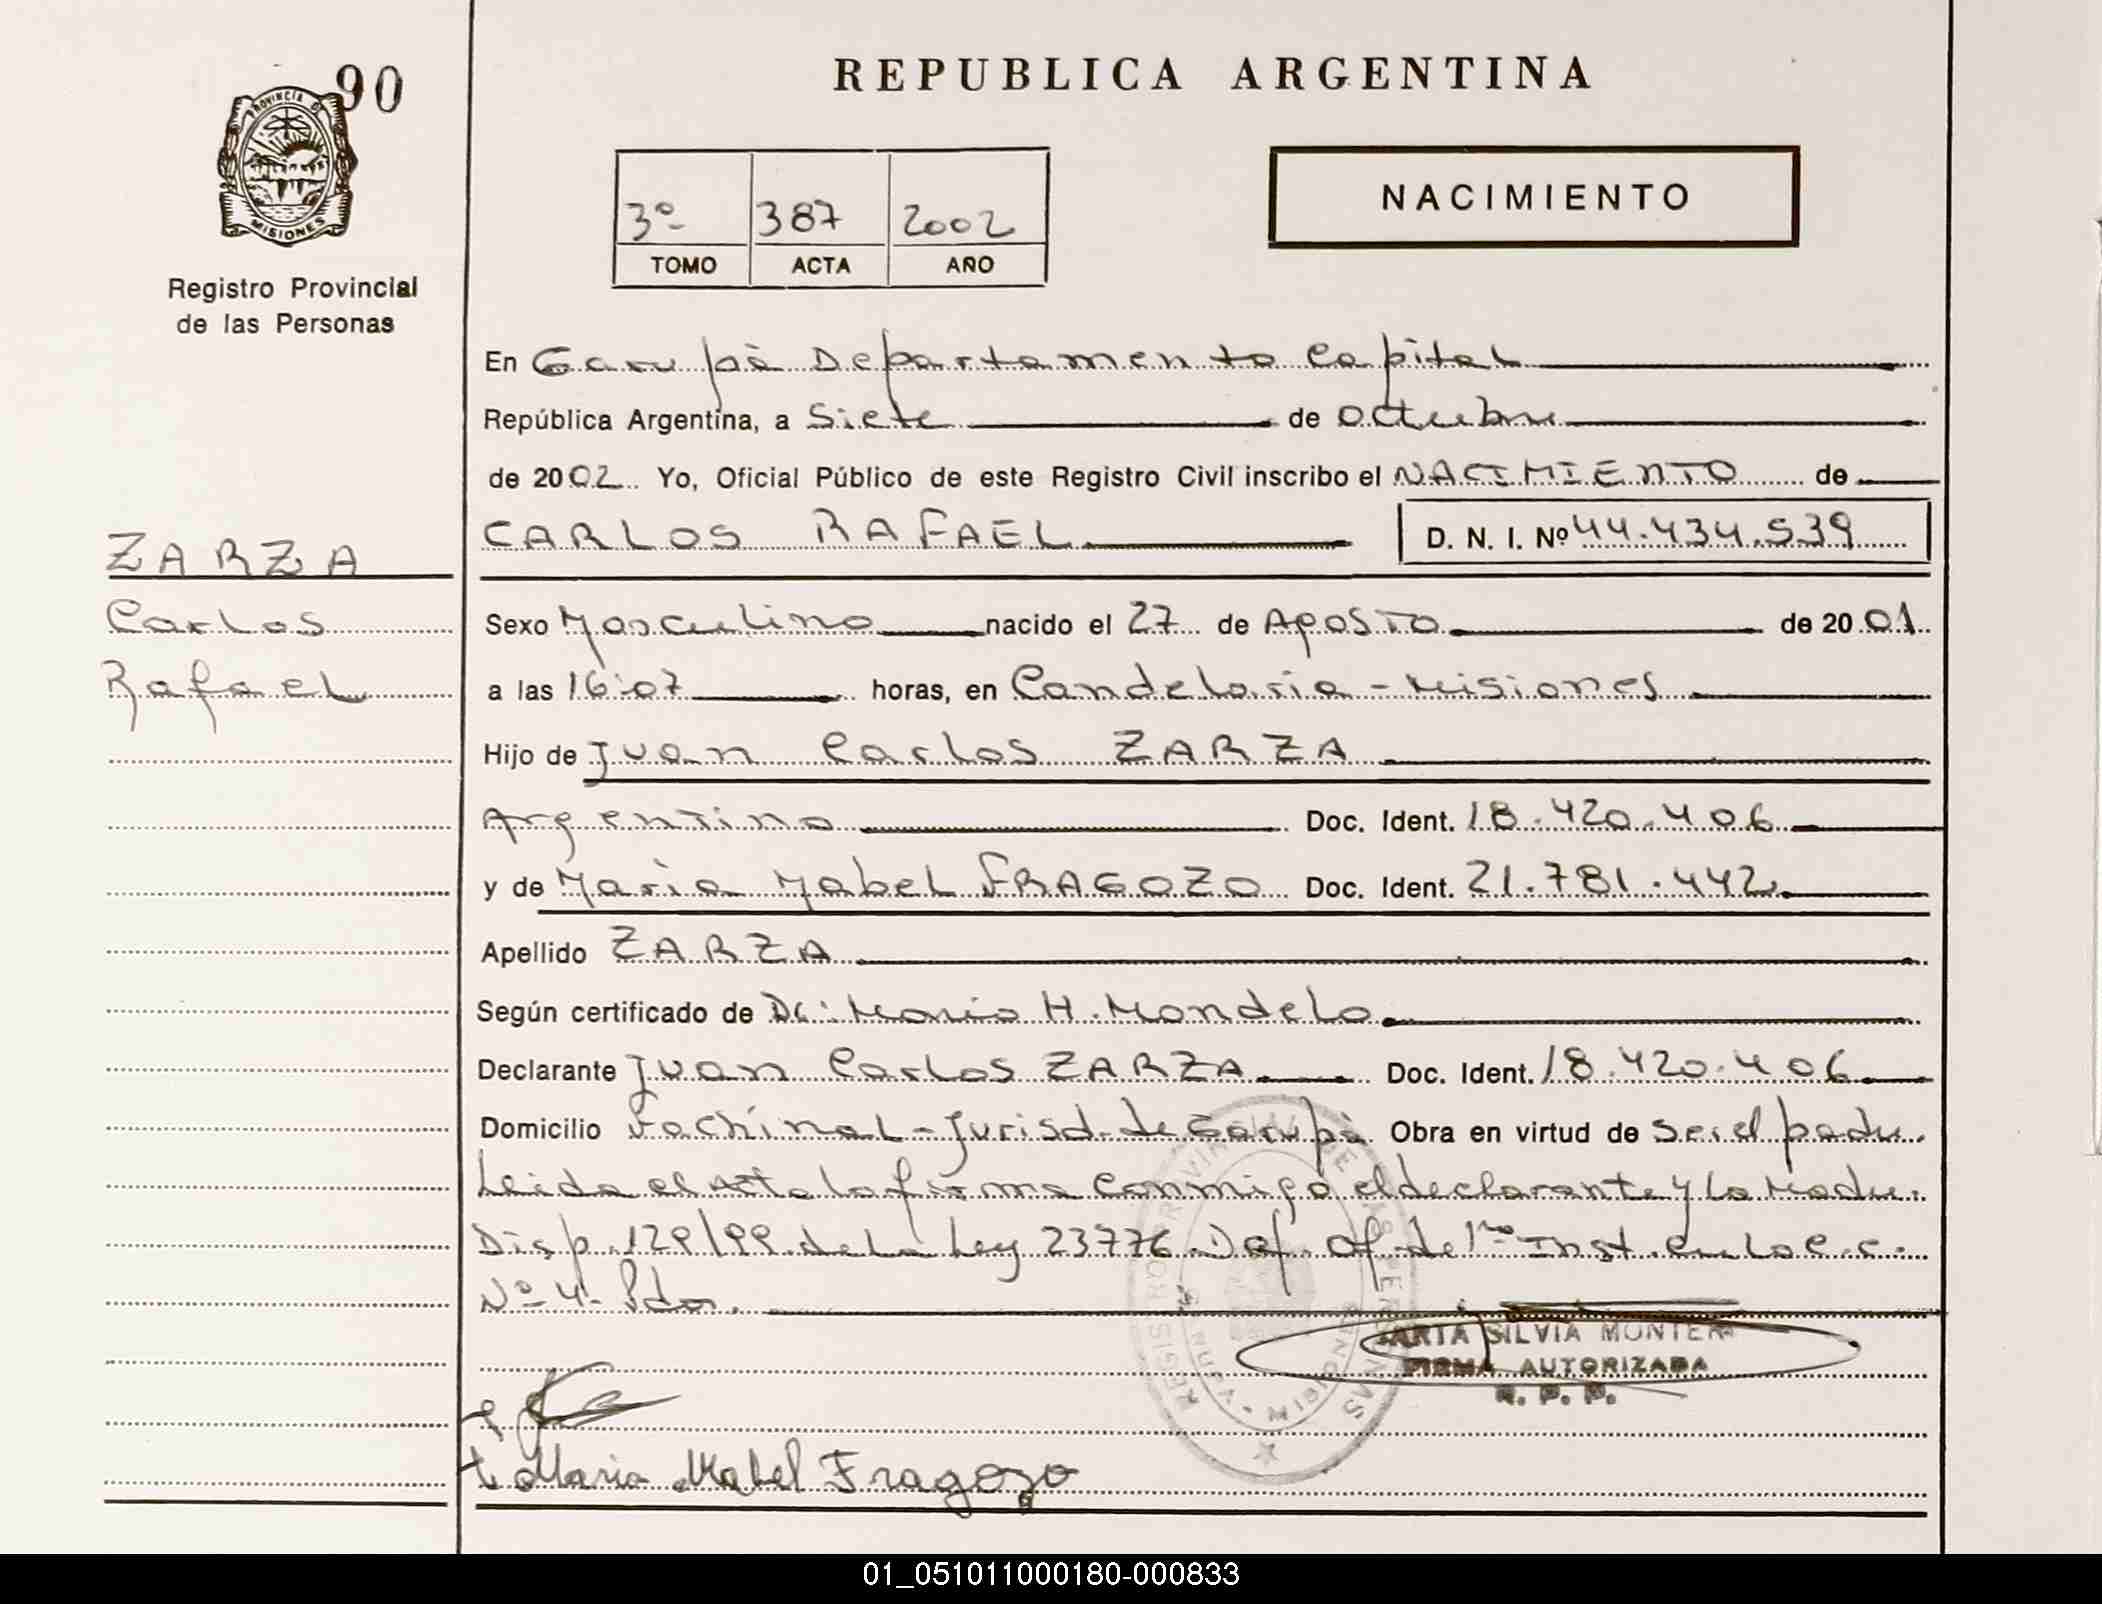 90
REPUBLICA ARGENTINA
PROVINCIA DE
MISIONES
Registro Provincial
de las Personas
3º 387 2002
TOMO ACTA AÑO
NACIMIENTO
En Garupà Departamento Capital
República Argentina, a Siete de Octubre
de 2002 Yo, Oficial Público de este Registro Civil inscribo el NACIMIENTO de
CARLOS RAFAEL D. N. I. Nº 44.434.539
ZARZA
Carlos
Rafael
Sexo Masculino nacido el 27 de Agosto de 2001
a las 16:07 horas, en Candelaria - Misiones
Hijo de Juan Carlos ZARZA
Argentino Doc. Ident. 18.420.406
y de Maria Mabel FRAGOZO Doc. Ident. 21.781.442
Apellido ZARZA
Según certificado de Dr: Mario H. Mondelo
Declarante Juan Carlos ZARZA Doc. Ident. 18.420.406
Domicilio Fachinal - Jurisd. de Garupà Obra en virtud de Ser el padre
Leida el Acta la firma conmigo el declarante y la Madre.
Disp. 129/99 de la Ley 23776 Def. Of. de 1ra Inst. en lo C. C.
Nº 4 Pdas.
SILVIA MONTE
FIRMA AUTORIZADA
R. P. P.
REGISTRO PROVINCIAL DE LAS PERSONAS
MISIONES
Maria Mabel Fragozo
01_051011000180-000833